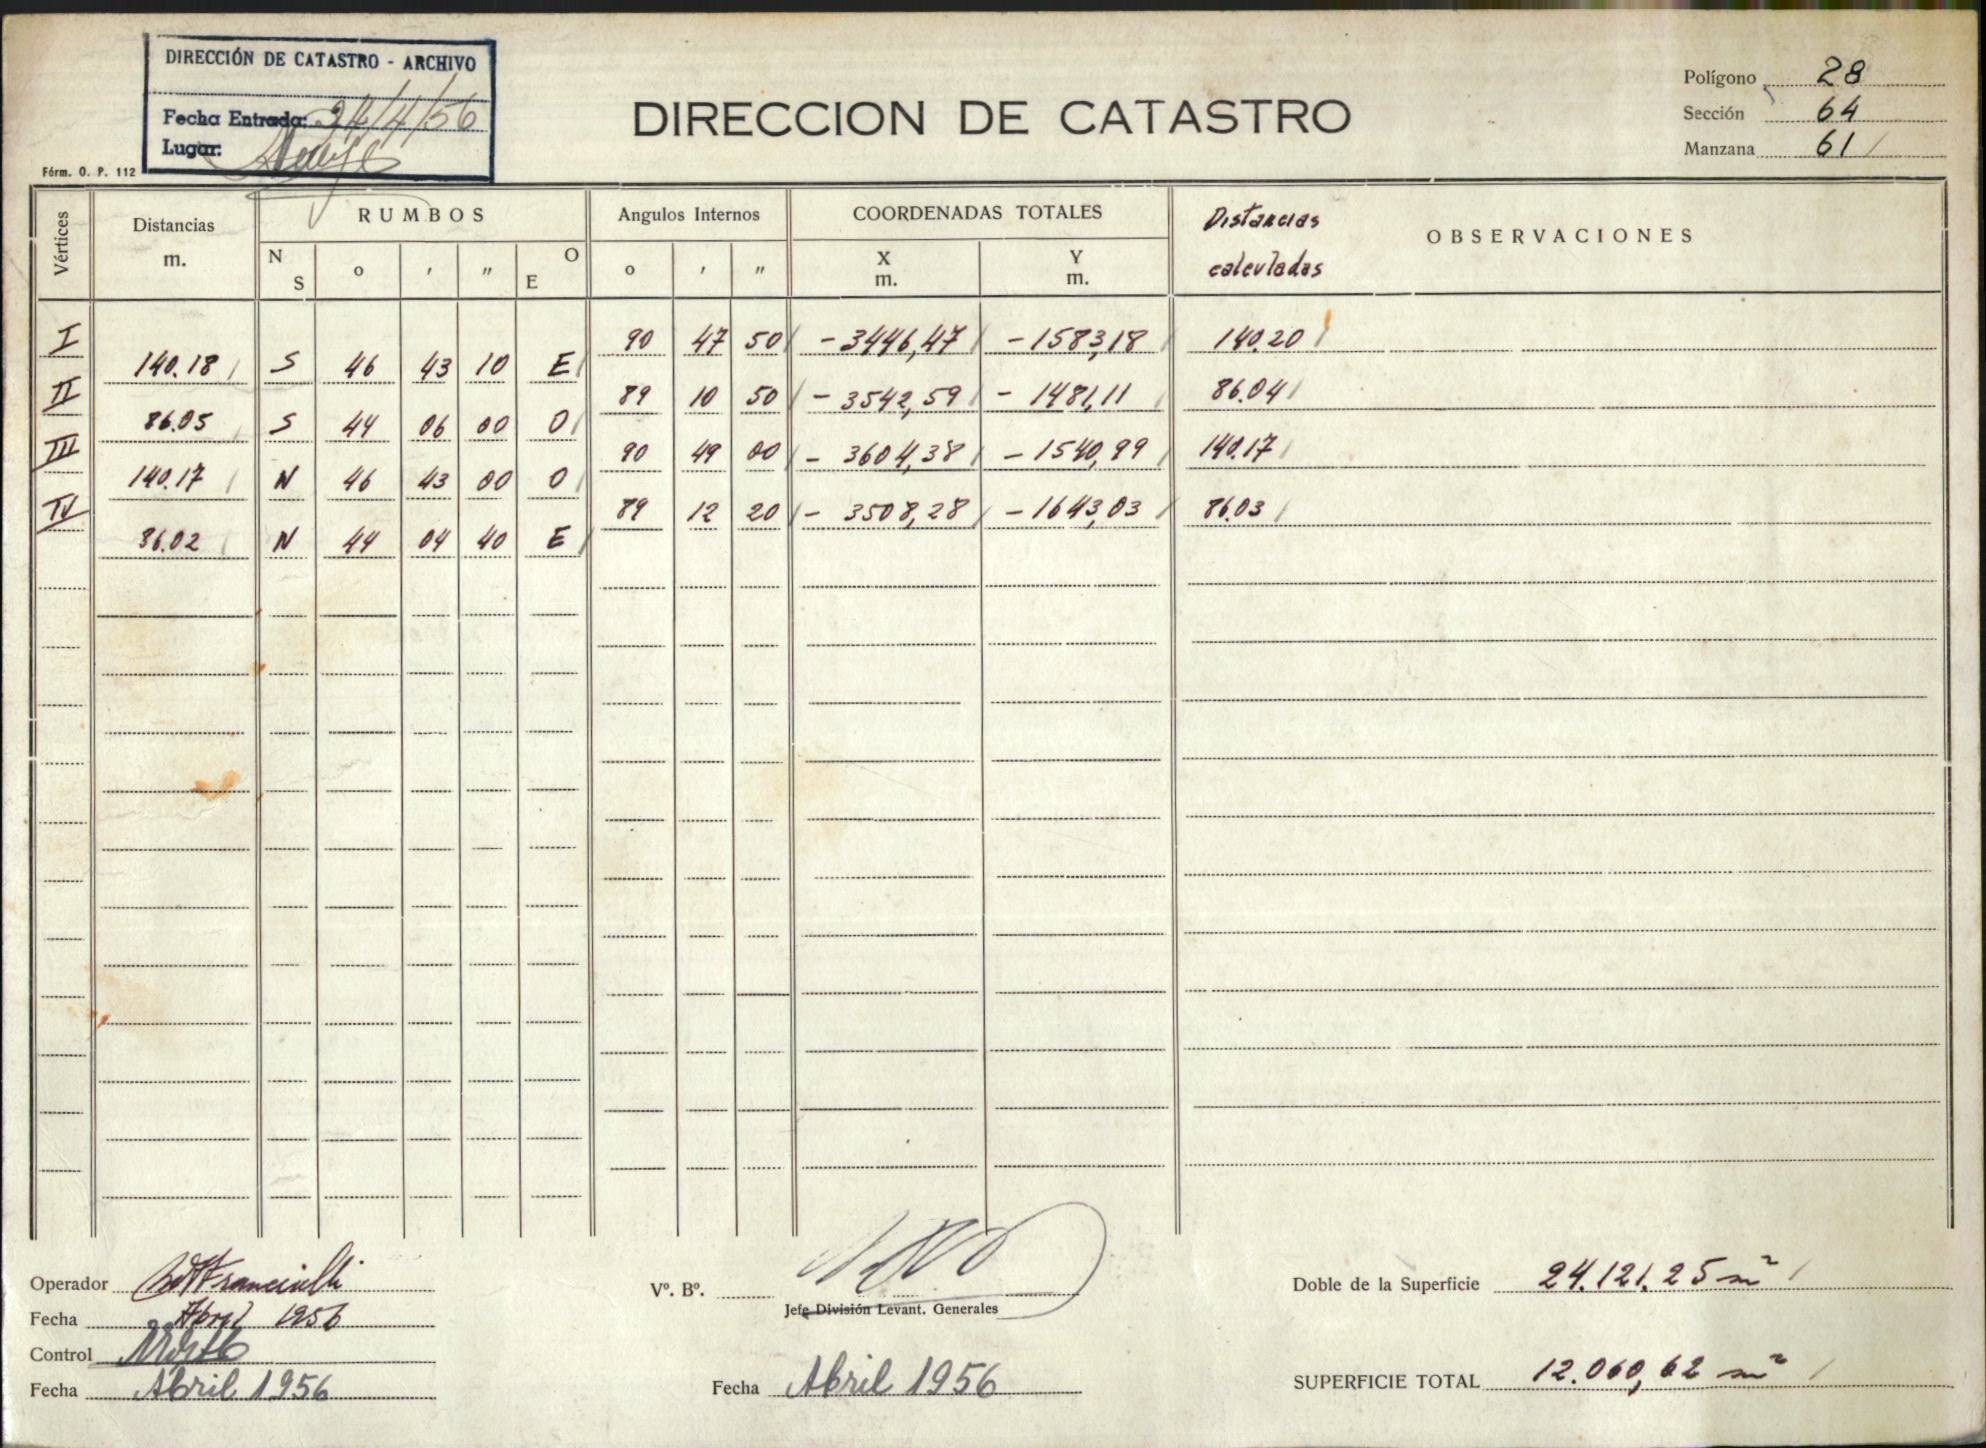 DIRECCIÓN DE CATASTRO - ARCHIVO
Fecha Entrada: 24/4/56
Lugar:
Fórm. O. P. 112
DIRECCION DE CATASTRO
Polígono 28
Sección 64
Manzana 61
Vértices Distancias m. RUMBOS Angulos Internos COORDENADAS TOTALES Distancias calculadas OBSERVACIONES
N S o ' " E O o ' " X m. Y m.
I 90 47 50 -3446,47 -1583,18 140.20
140.18 S 46 43 10 E
II 89 10 50 -3542,59 -1481,11 86.04
86.05 S 44 06 00 O
III 90 49 00 -3604,38 -1540,99 140.17
140.17 N 46 43 00 O
IV 89 12 20 -3508,28 -1643,03 86.03
86.02 N 44 04 40 E
Operador
Fecha Abril 1956
Control
Fecha Abril 1956
Vº. Bº.
Jefe División Levant. Generales
Fecha Abril 1956
Doble de la Superficie 24.121.25 m²
SUPERFICIE TOTAL 12.060,62 m²